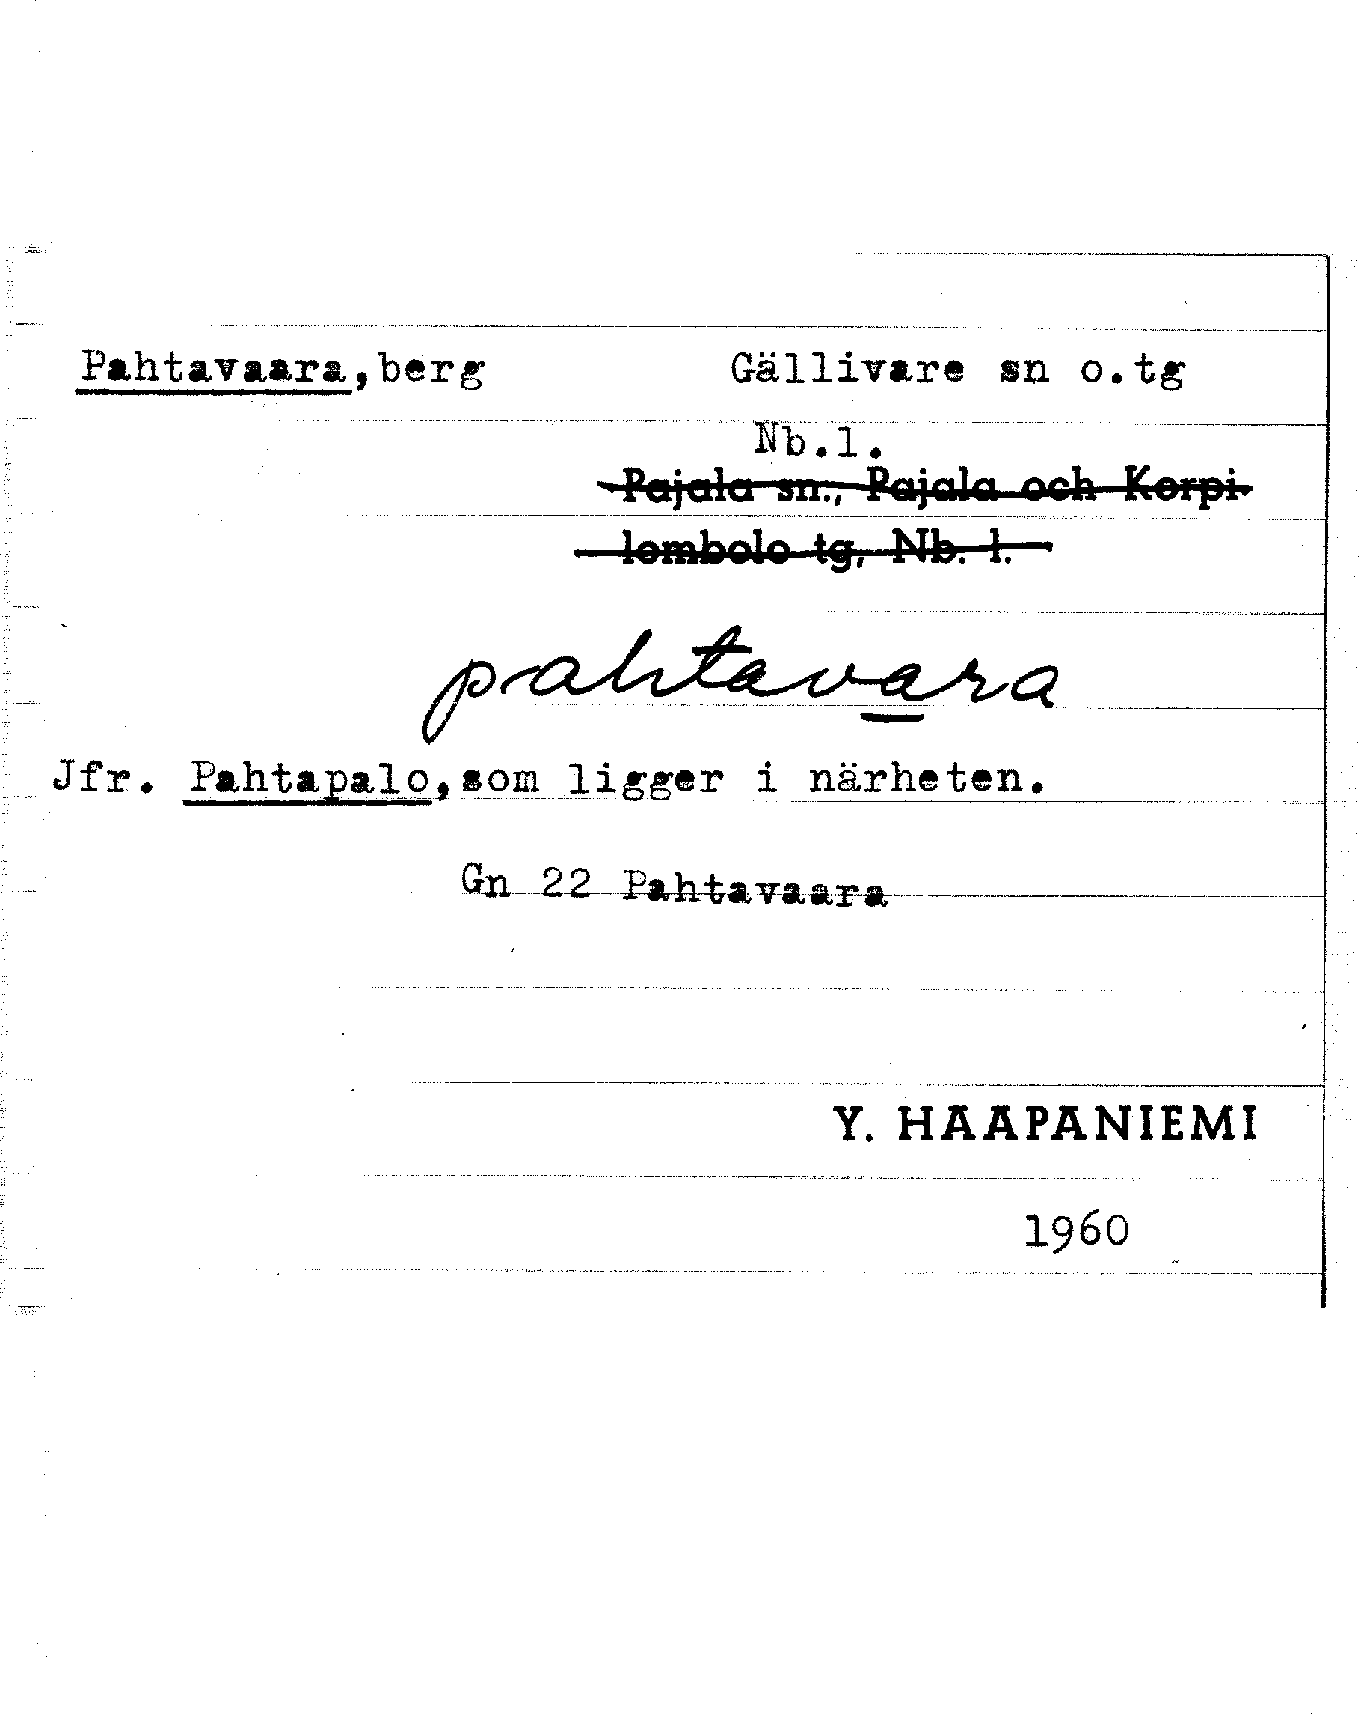 Pahtavaara,berg Gällivare sn o.tg
Nb.l.
Pajala sn., Pajala och Korpi-
lombolo tg, Nb. l.
pahtavara
Jfr. Pahtapalo,som ligger i närheten.
Gn 22 Pahtavaara
Y. HAAPANIEMI
1960